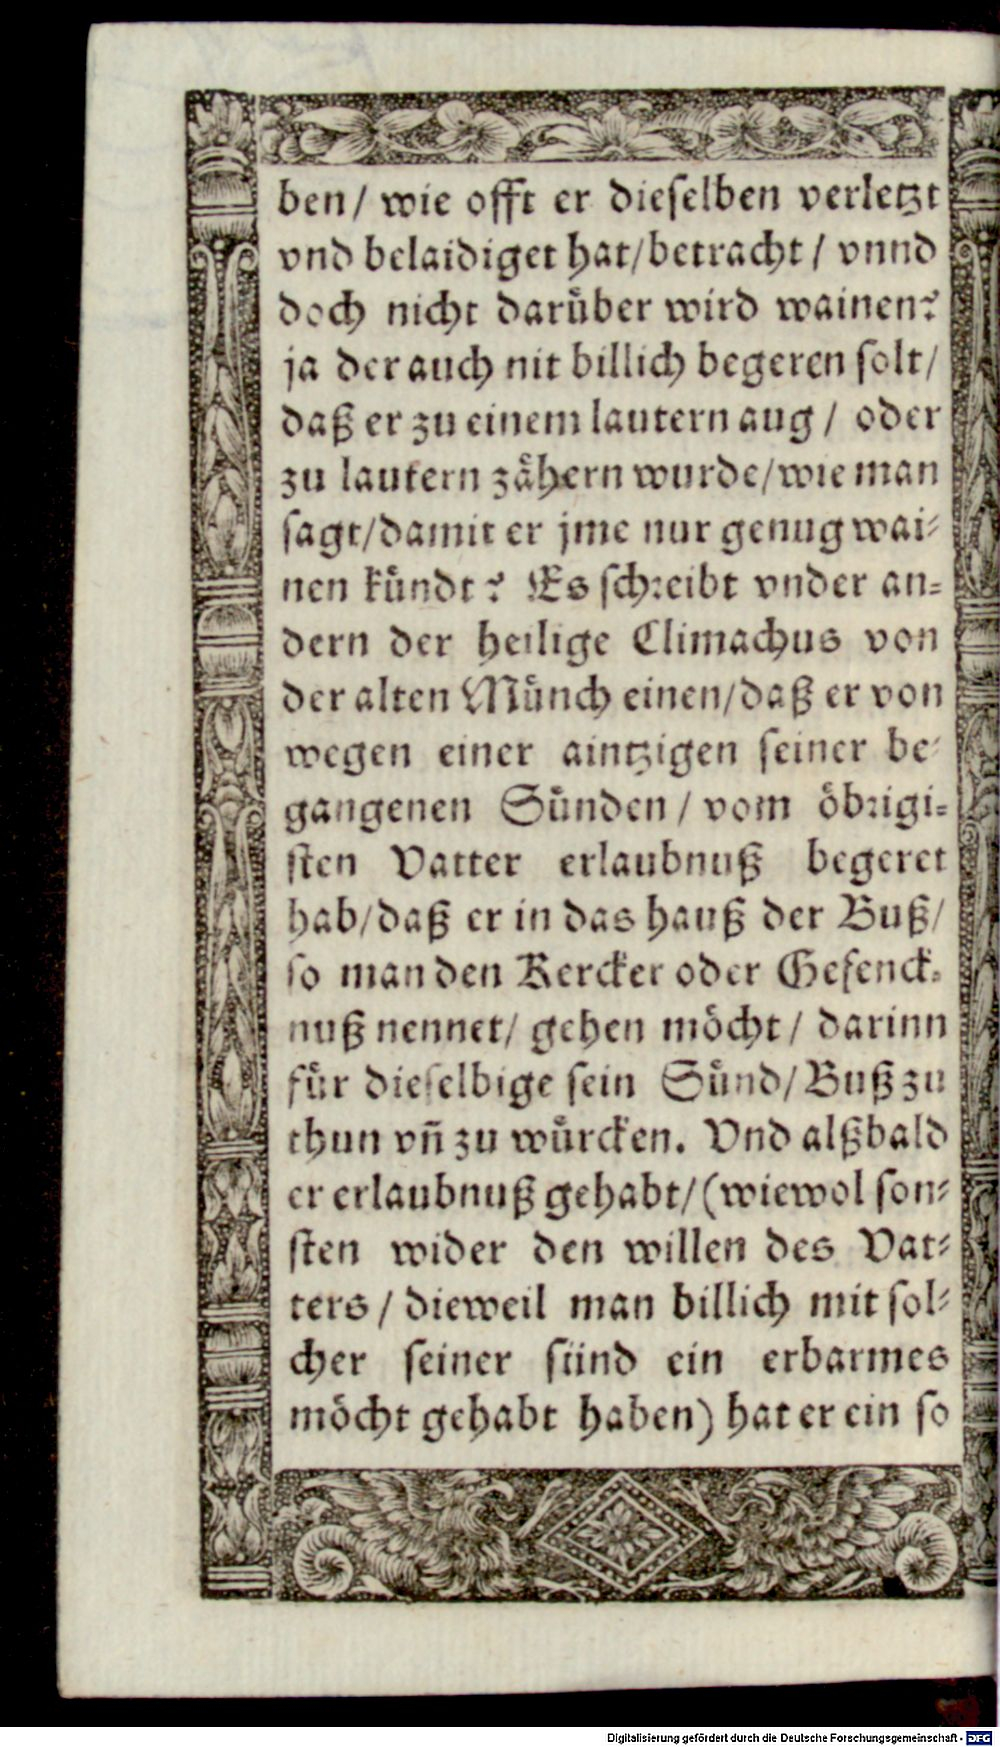 ben/ wie offt er dieſelben verletzt
vnd belaidiget hat/betracht/ vnnd
doch nicht darüber wird wainen?
ja der auch nit billich begeren ſolt/
daß er zu einem lautern aug/ oder
zu lautern zähern wurde/wie man
ſagt/damit er jme nur genug wai⸗
nen kündt? Es ſchreibt vnder an⸗
dern der heilige Climachus von
der alten Münch einen/daß er von
wegen einer aintzigen ſeiner be⸗
gangenen Sünden/ vom öbrigi⸗
ſten Vatter erlaubnuß begeret
hab/daß er in das hauß der Buß/
ſo man den Kercker oder Gefenck⸗
nuß nennet/ gehen möcht/ darinn
für dieſelbige ſein Sünd/Buß zu
thun vñ zu würcken. Vnd alßbald
er erlaubnuß gehabt/(wiewol ſon⸗
ſten wider den willen des Vat⸗
ters/ dieweil man billich mit ſol⸗
cher ſeiner ſünd ein erbarmes
möcht gehabt haben) hat er ein ſo
Digitalisierung gefördert durch die Deutsche Forschungsgemeinschaft - DFG